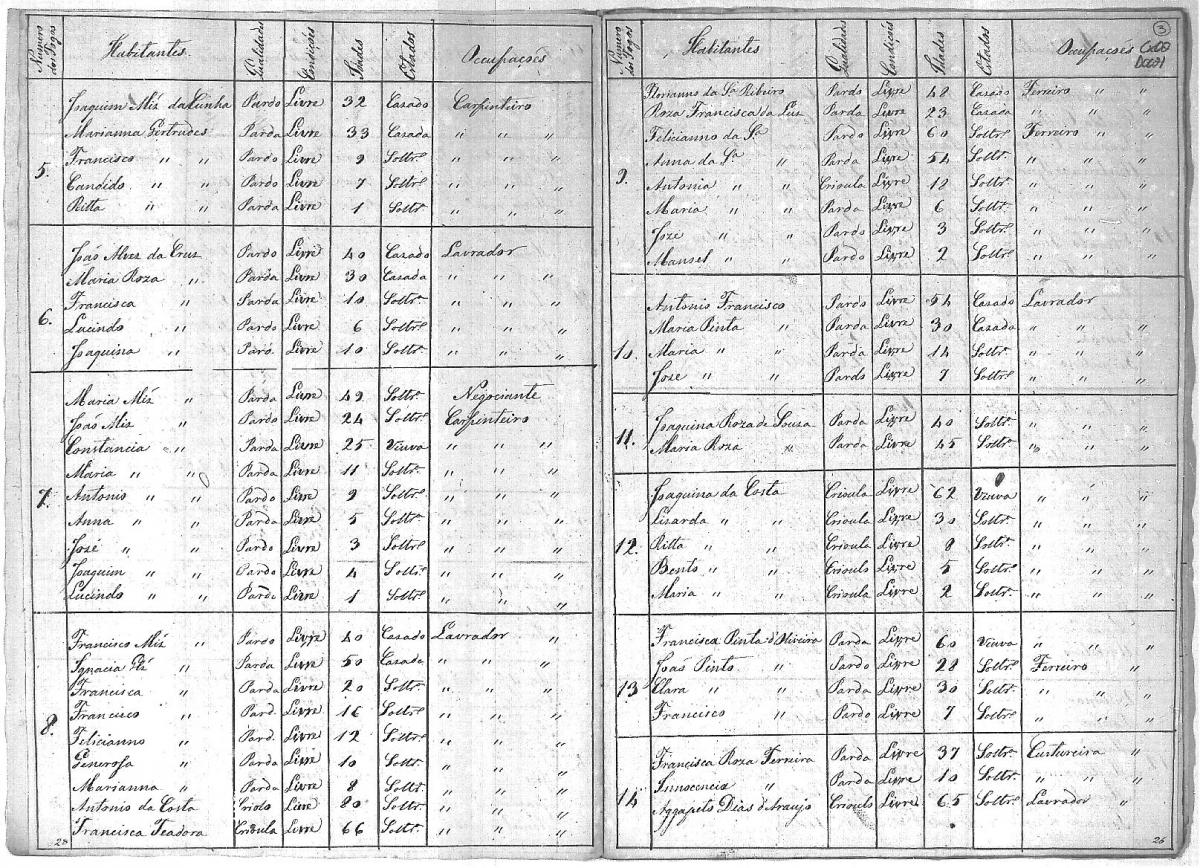 Numero dos Fogos Habitantes Qualidades Condiçõis Idades Estados Occupaçoes
Joaquim Miz da Cunha Pardo Livre 32 Cazado Carpinteiro
Marianna Gertrudes Parda Livre 33 Cazada " " "
Francisco " " Pardo Livre 9 Soltrº " " "
5. Candido " " Pardo Livre 7 Soltrº " " "
Ritta " " Parda Livre 1 Soltrª " " "
João Alvez da Cruz Pardo Livre 40 Cazado Lavrador
Maria Roza " Parda Livre 30 Cazada " " "
Francisca " Parda Livre 10 Soltrª " "
6. Lucindo " Pardo Livre 6 Soltrº " " "
Joaquina " Pard. Livre 10 Soltrª " " "
Maria Miz " Parda Livre 49 Soltrª Negociante
João Miz " Pardo Livre 24 Soltrº Carpinteiro
Constancia " " Parda Livre 25 Viuva " " "
Maria " " Parda Livre 11 Soltrª " " "
7. Antonio " " Pardo Livre 9 Soltrº " " "
Anna " " Parda Livre 5 Soltrª " " "
José " " Pardo Livre 3 Soltrº " " "
Joaquim " " Pardo Livre 4 Soltrº " " "
Lucindo " " Pardo Livre 1 Soltrº " " "
Francisco Miz " Pardo Livre 40 Cazado Lavrador "
Ignacia " Parda Livre 50 Cazada " " "
Francisca " Parda Livre 20 Soltrª " " "
Francisco " Pard. Livre 16 Soltrº " " "
8. Felicianno " Pard. Livre 12 Soltrº " " "
Generosa " Parda Livre 10 Soltrª " " "
Marianna " Parda Livre 8 Soltrª " " "
Antonio da Costa Criolo Livre 80 Soltrº " " "
Francisca Teadora Crioula Livre 66 Soltrª " " "
Numero dos Fogos Habitantes Qualidades Condiçõis Idades Estados Occupaçoes
3
Florianno da Sª Ribeiro Pardo Livre 48 Cazado Ferreiro " "
Roza Francisca da Luz Parda Livre 23 Cazada " " "
Felicianno da Sª Pardo Livre 60 Soltrº Ferreiro " "
Anna da Sª " Parda Livre 54 Soltrª " " "
9. Antonia " " Crioula Livre 12 Soltrª " " "
Maria " " Parda Livre 6 Soltrª " " "
Joze " " Pardo Livre 3 Soltrº " " "
Manoel " " Pardo Livre 2 Soltrº " " "
Antonio Francisco Pardo Livre 54 Cazado Lavrador
Maria Pinta " Parda Livre 30 Cazada " " "
10. Maria " " Parda Livre 14 Soltrª " " "
Joze " " Pardo Livre 7 Soltrº " " "
11. Joaquina Roza de Souza Parda Livre 40 Soltrª " " "
Maria Roza " Parda Livre 45 Soltrª " " "
Joaquina da Costa Crioula Livre 62 Viuva " " "
Lizarda " " Crioula Livre 30 Soltrª " " "
12. Ritta " " Crioula Livre 8 Soltrª " " "
Bento " " Crioulo Livre 5 Soltrº " " "
Maria " " Crioula Livre 2 Soltrª " " "
Francisca Pinta d'Oliveira Parda Livre 60 Viuva " " "
João Pinto " Pardo Livre 28 Soltrº Ferreiro "
13 Clara " " Parda Livre 30 Soltrª " " "
Francisco " Pardo Livre 7 Soltrº " " "
Francisca Roza Ferreira Parda Livre 37 Soltrª Custureira "
Innocencia " Parda Livre 10 Soltrª " " "
14 Aggapeto Dias d'Araujo Crioulo Livre 65 Soltrº Lavrador "
26